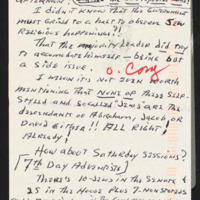 I DIDN'T KNOW THAT THE GOVERNMENT
MUST GRIND TO A HALT TO OBSERVE JEW
RELIGIOUS HAPPENINGS!!
THAT THE MAJORITY LEADER DID TRY
TO ACCOMODATE HIMSELF — BEING BUT
A SIDE ISSUE.
O. Cony
I WOULD IT'S NOT EVEN WORTH
MENTIONING THAT NONE OF THESE SELF-
STYLED AND SO CALLED "JEWS" ARE THE
DESCENDANTS OF ABRAHAM, JACOB, OR
DAVID EITHER!! ALL RIGHT
ALREADY!
HOW ABOUT SATURDAY SESSIONS?
(7TH DAY ADVENTISTS)
THERE'S 10-JEWS IN THE SENATE &
IS IN THE HOUSE PLUS 7-NONVOTERS